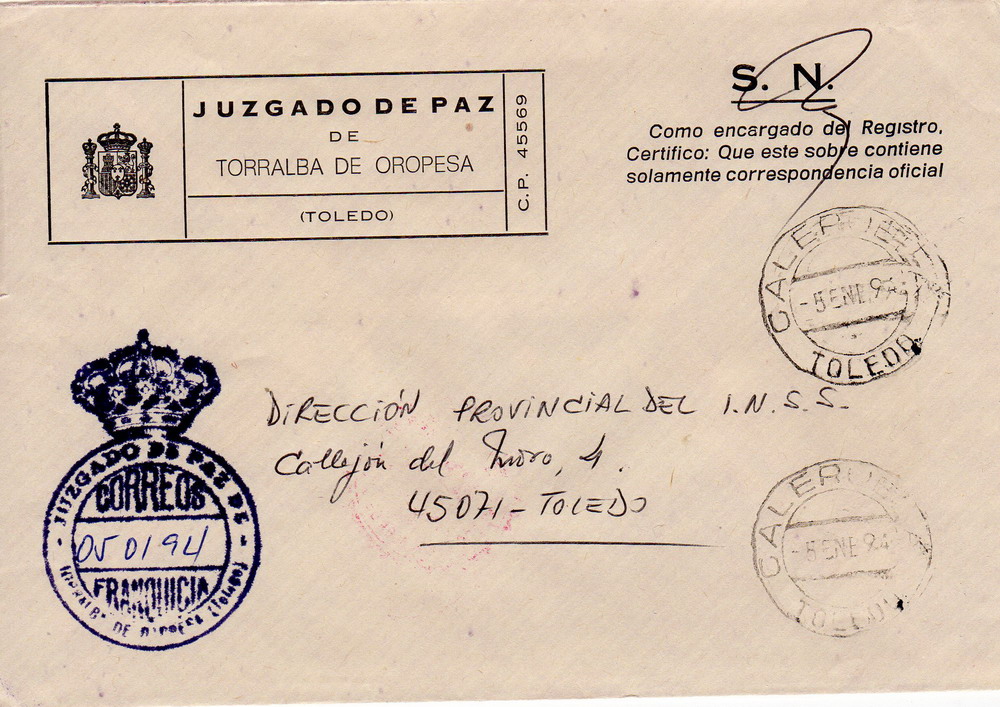 JUZGADO DE PAZ
DE
TORRALBA DE OROPESA
(TOLEDO)
C.P. 45569
S. N.
Como encargado del Registro,
Certifico: Que este sobre contiene
solamente correspondencia oficial
CALERUELA
-5 ENE. 94
TOLEDO
DIRECCIÓN PROVINCIAL DEL I.N.S.S.
Callejón del Moro, 4.
45071 - TOLEDO
- JUZGADO DE PAZ DE -
CORREOS
05 01 94
FRANQUICIA
TORRALBA DE OROPESA (TOLEDO)
CALERUELA
-5 ENE 94
TOLEDO